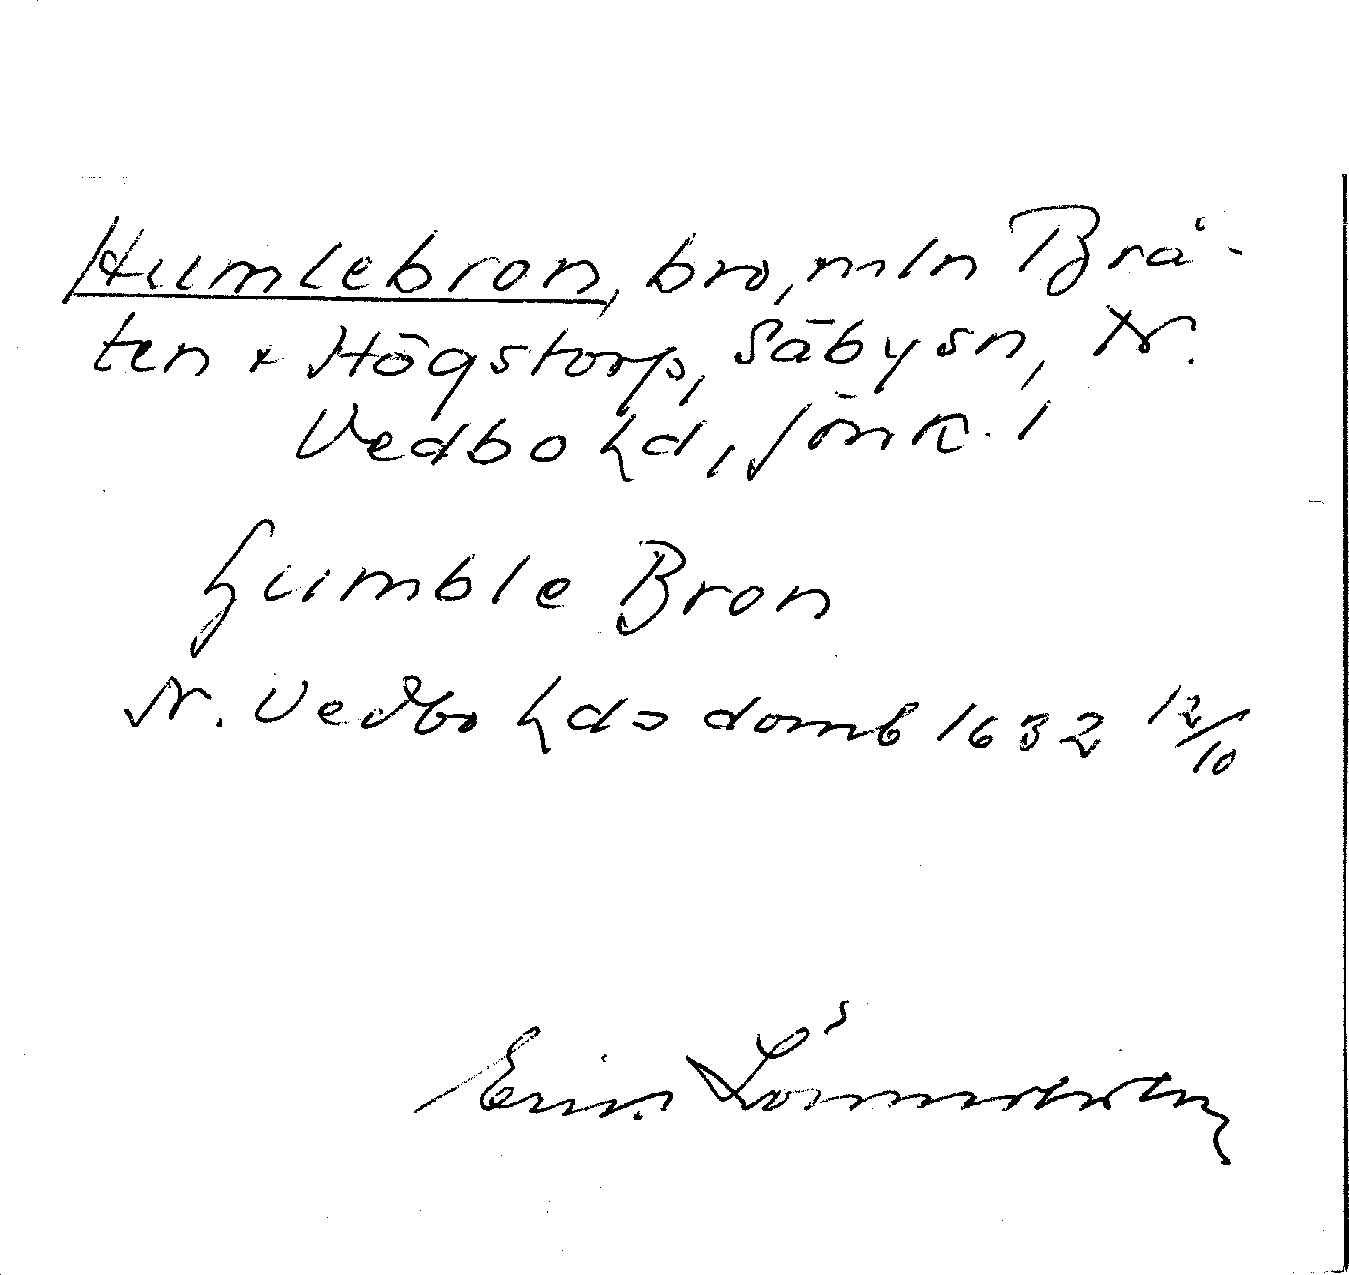 Humlebron, bro, mln Brå-
ten & Högstorp, Säbysn, N.
Vedbo hd, Jönk. l
humble Bron
N. Vedbo hds domb 1632 12/10